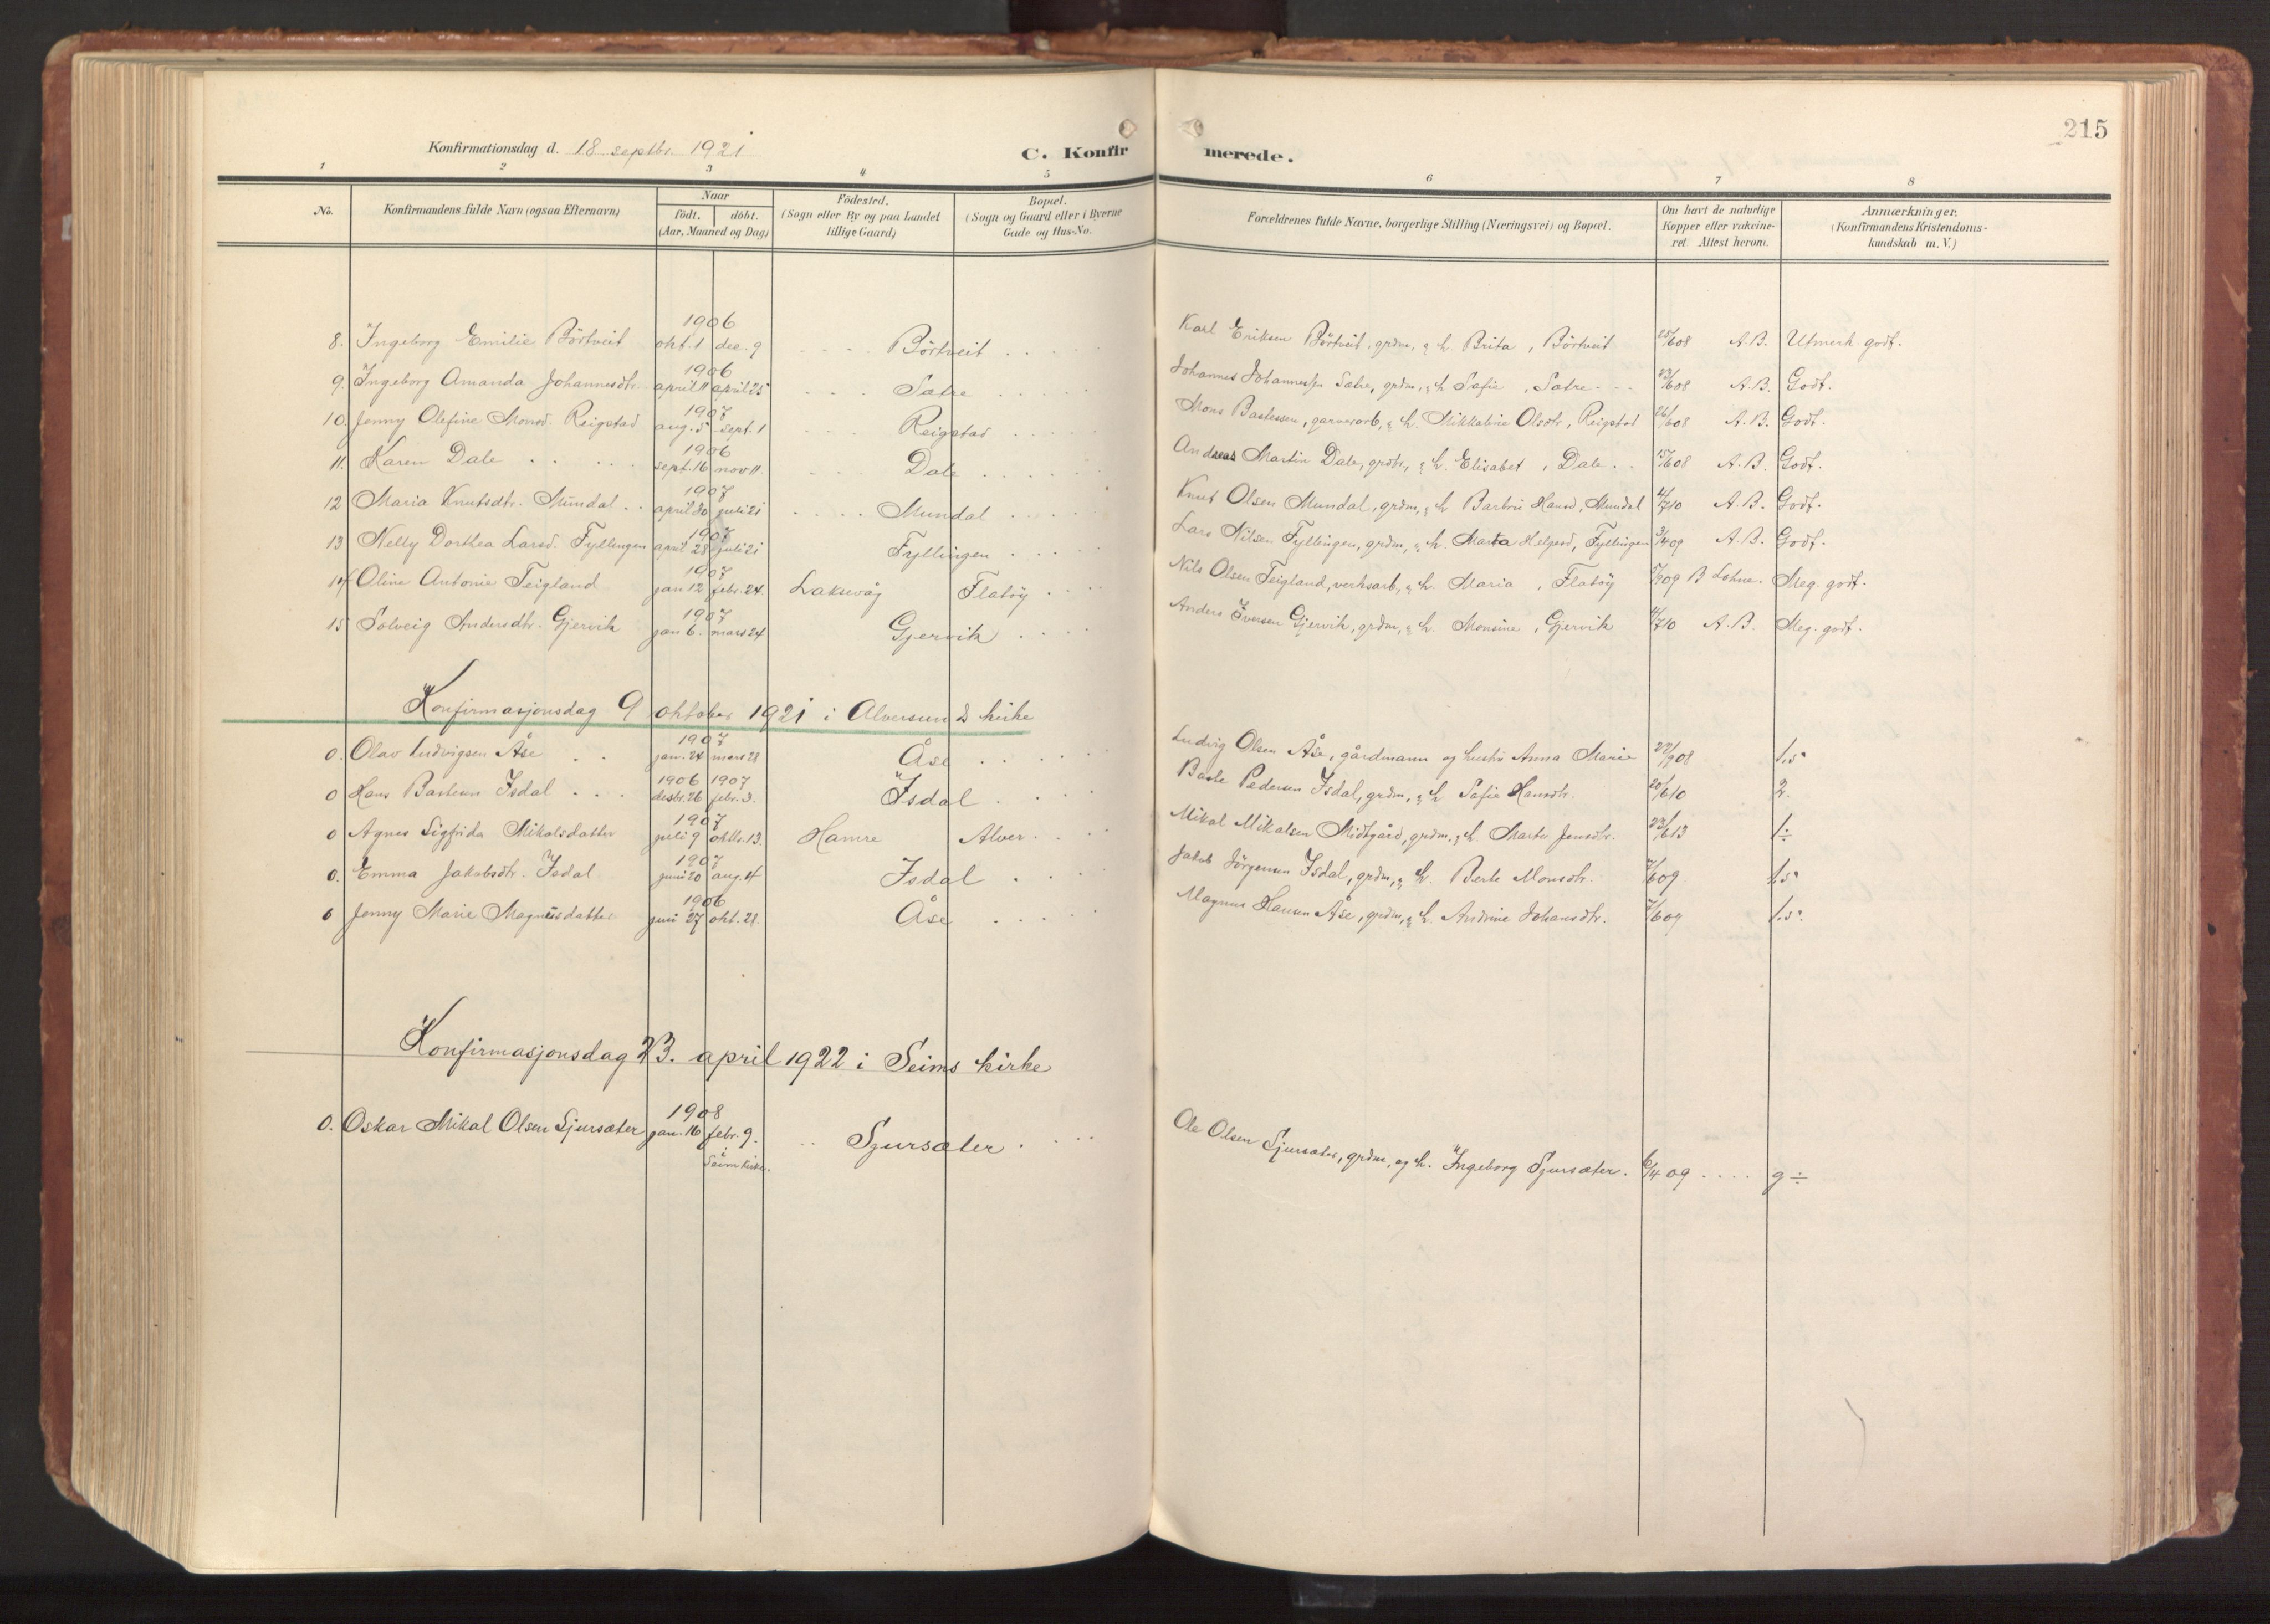 215
Konfirmationsdag d. 18 septbr. 1921
C. Konfirmerede.
1 2 3 4 5 6 7 8
No.
Konfirmandens fulde Navn (ogsaa Efternavn)
Naar
födt. döbt.
(Aar, Maaned og Dag)
Födested.
(Sogn eller By og paa Landet
tillige Gaard)
Bopæl.
(Sogn og Gaard eller i Byerne
Gade og Hus-No.
Forældrenes fulde Navne, borgerlige Stilling (Næringsvei) og Bopæl.
Om havt de naturlige
Kopper eller vakcine-
ret Attest herom.
Anmærkninger.
(Konfirmandens Kristendoms-
kundskab m. V.)
1906
8. Ingeborg Emilie Börtveit okt. 1 dec. 9 Börtveit Karl Eriksen Börtveit, grdm, & h. Brita, Börtveit 25/6 08 A.B. Utmerk. godt.
1906
9. Ingeborg Amanda Johannesdtr. april 11 april 25 Sætre Johannes Johannessen Sætre, grdm, & h. Sofie, Sætre 23/6 08 A.B. Godt.
1907
10. Jenny Olefine Monsd. Reigstad aug. 5 sept. 1 Reigstad Mons Bastessen, garverarb, & h. Mikkaline Olsdtr, Reigstad 26/6 08 A.B. Godt.
1906
11. Karen Dale sept. 16 nov 11 Dale Andreas Martin Dale, grdbr, & h. Elisabet, Dale 15/6 08 A.B. Godt.
1907
12 Maria Knutsdtr. Mundal april 30 juli 21 Mundal Knut Olsen Mundal, grdm, & h. Barbru Hansd, Mundal 4/7 10 A.B. Godt.
1907
13 Nelly Dorthea Larsd. Fyllingen april 28 juli 21 Fyllingen Lars Nilsen Fyllingen, grdm, & h. Marta Helgesd, Fyllingen 3/4 09 A.B. Godt.
1907
14 Oline Antonie Teigland jan 12 febr. 24. Laksevåg Flatöy Nils Olsen Teigland, verksarb, & h. Maria, Flatöy 09 B Lohne. Meg. godt.
1907
15 Solveig Andersdtr. Gjervik jan 6. mars 24 Gjervik Anders Iversen Gjervik, grdm, & h. Monsine, Gjervik 4/7 10 A.B. Meg. godt.
Konfirmasjonsdag 9 oktober 1921 i Alversund kirke
1907
0. Olav Ludvigsen Åse jan. 24 mars 28 Åse Ludvig Olsen Åse, gårdmann og hustr. Anna Marie 08 1.5
1906 1907
0 Hans Bastesen Isdal desbr. 26 febr. 3. Isdal Baste Pedersen Isdal, grdm, & h. Sofie Hansdtr. 20/6 10 2.
1907
0 Agnes Sigfrida Mikalsdatter juli 9 oktbr. 13. Hamre Alver Mikal Mikalsen Midtgård, grdm. & h. Marta Jensdtr. 23/6 13 1÷
1907
0. Emma Jakobsdtr. Isdal juni 20 aug. 4 Isdal Jakob Jörgensen Isdal, grdm, & h. Berte Monsdtr. 7/6 09 1.5
1906
0 Jenny Marie Magnusdatter juni 27 okt. 28. Åse Magnus Hansen Åse, grdm, & h. Andrine Johansdtr. 7/6 09 1.5
Konfirmasjonsdag 23. april 1922 i Seims kirke
1908
0. Oskar Mikal Olsen Sjursæter jan. 16 febr. 9. Sjursæter Ole Olsen Sjursæter, grdm, og h. Ingeborg Sjursæter. 6/4 09 g÷
i
Seim kirke.